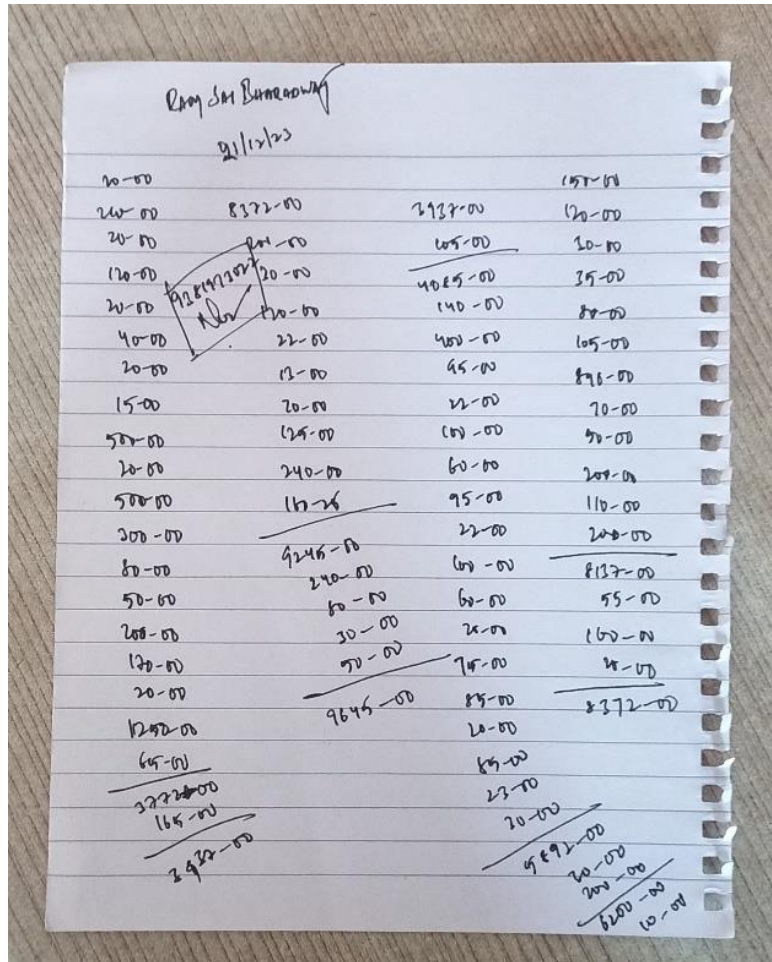 Ram Sai Bharadwaj
21/12/23
20-00
240-00
20-00
120-00
20-00
40-00
20-00
15-00
500-00
20-00
500-00
300-00
80-00
50-00
200-00
120-00
20-00
1252-00
65-00
3772-00
165-00
3937-00
8372-00
30-00
120-00
22-00
13-00
20-00
125-00
240-00
9245-00
240-00
80-00
30-00
50-00
9645-00
3937-00
105-00
140-00
400-00
95-00
22-00
100-00
60-00
95-00
22-00
100-00
60-00
25-00
75-00
85-00
20-00
85-00
23-00
20-00
5892-00
200-00
6200-00
10-00
150-00
120-00
30-00
35-00
80-00
105-00
896-00
70-00
50-00
200-00
110-00
200-00
8137-00
55-00
8372-00